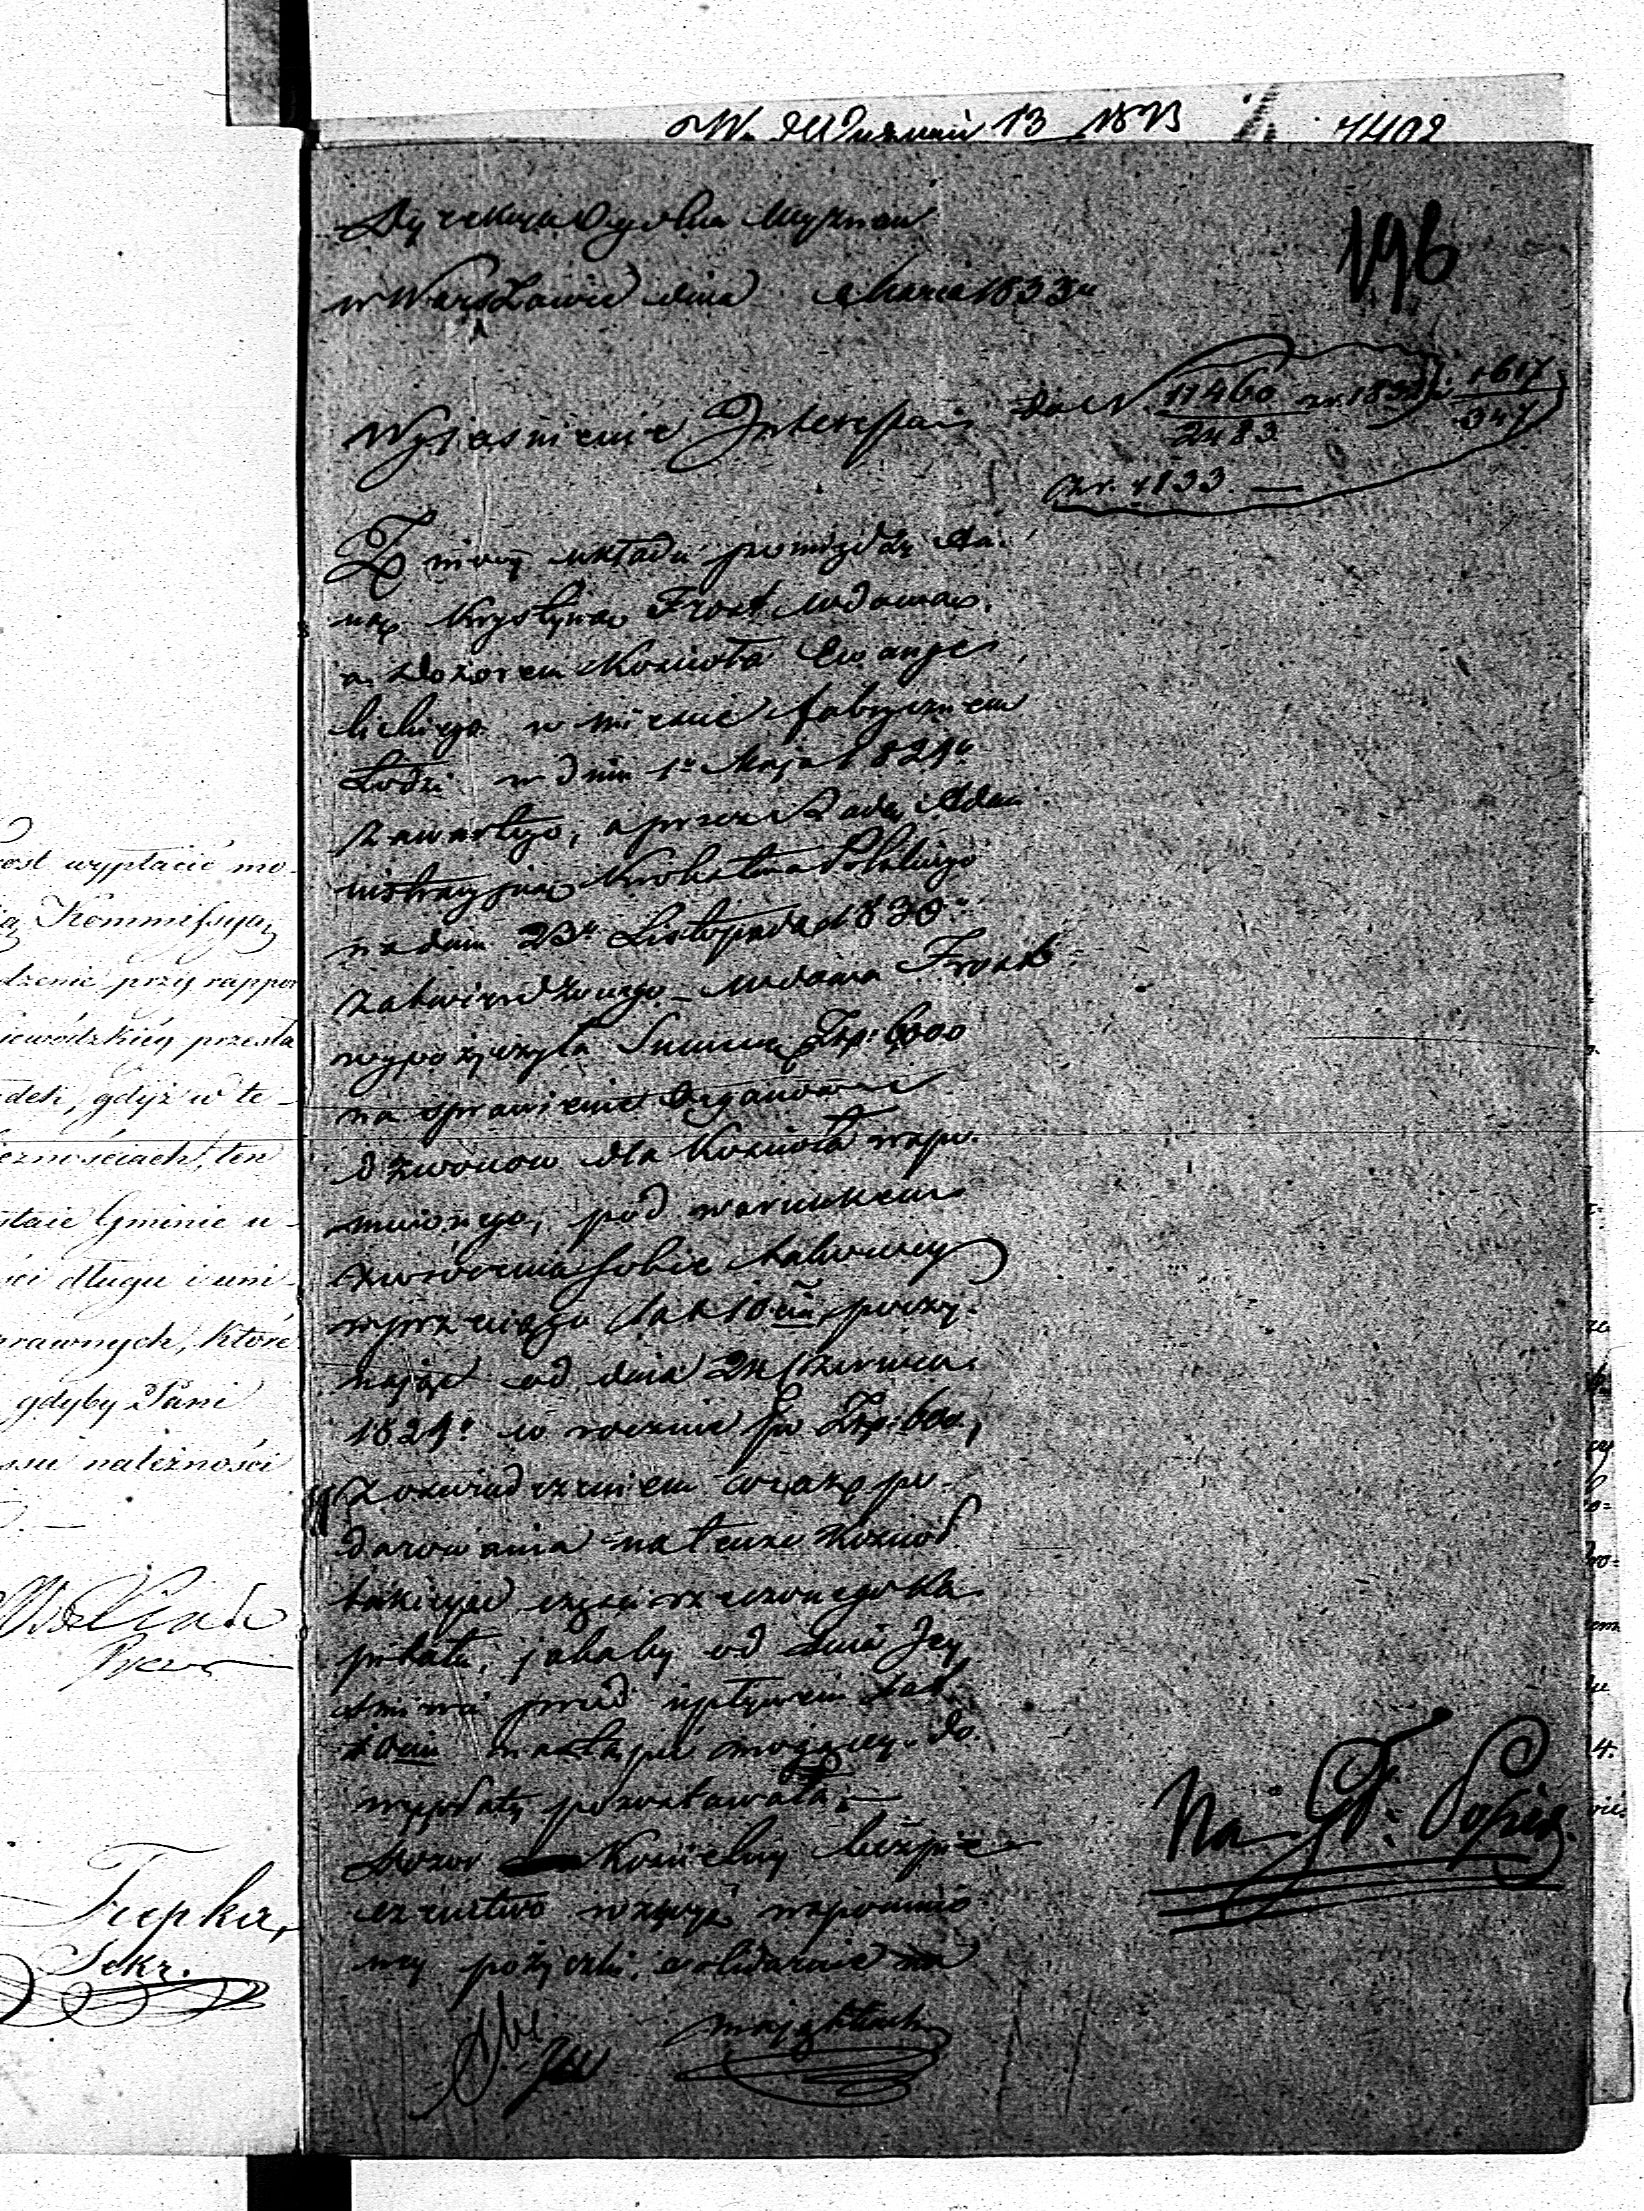 13 1833
7402
196
w Warszawie dnia Marca 1833 r
Wyjasnienie Interessu do N. 17460 1832 i 1617
2483 347
z r. 1833. —
Z mocy układu pomiędzy An-
ną Krystyną Frost Wdową
a Dozorem Kościoła Ewanje-
lickiego w mieście fabrycznem
Łodzi w dniu 1o Maja 1829 r
zawartego, a przez Radę Admi-
nistracyjną Królestwa Polskiego
na dniu 23o Listopada 1830 r
zatwierdzonego – Wdowa Frost
wypożyczyła Summę Złp. 6000
na sprawienie Organów i
dzwonów dla Kościoła wspo-
mnionego, pod warunkiem
zwrócenia sobie takowey
w przeciągu lat 10ciu, poczy-
nając od dnia 24 Czerwca
1829 r co rocznie po Złp. 600,
z oświadczeniem oraz po-
darowania na tenże Kościoł
takieyże części rzeczonego Ka-
pitału, jakaby od dnia Jey
śmierci przed upływem lat
10ciu nastąpić mogącey do
wypłaty pozostawała. —
Dozor Kościelny bezpie-
czeństwo wzięty wspomnio-
ney pożyczki, solidarnie na
majątkach
ost wypłacić mo-
ią Kommissyą
dzenie przy rappor
iewódzkiey przesła
deli, gdyż w te-
cznościach, ten
staie Gminie u-
ści długu i uni-
prawnych, które
gdyby Pani
ssu należności
Prezes
Trepka,
Sekr.